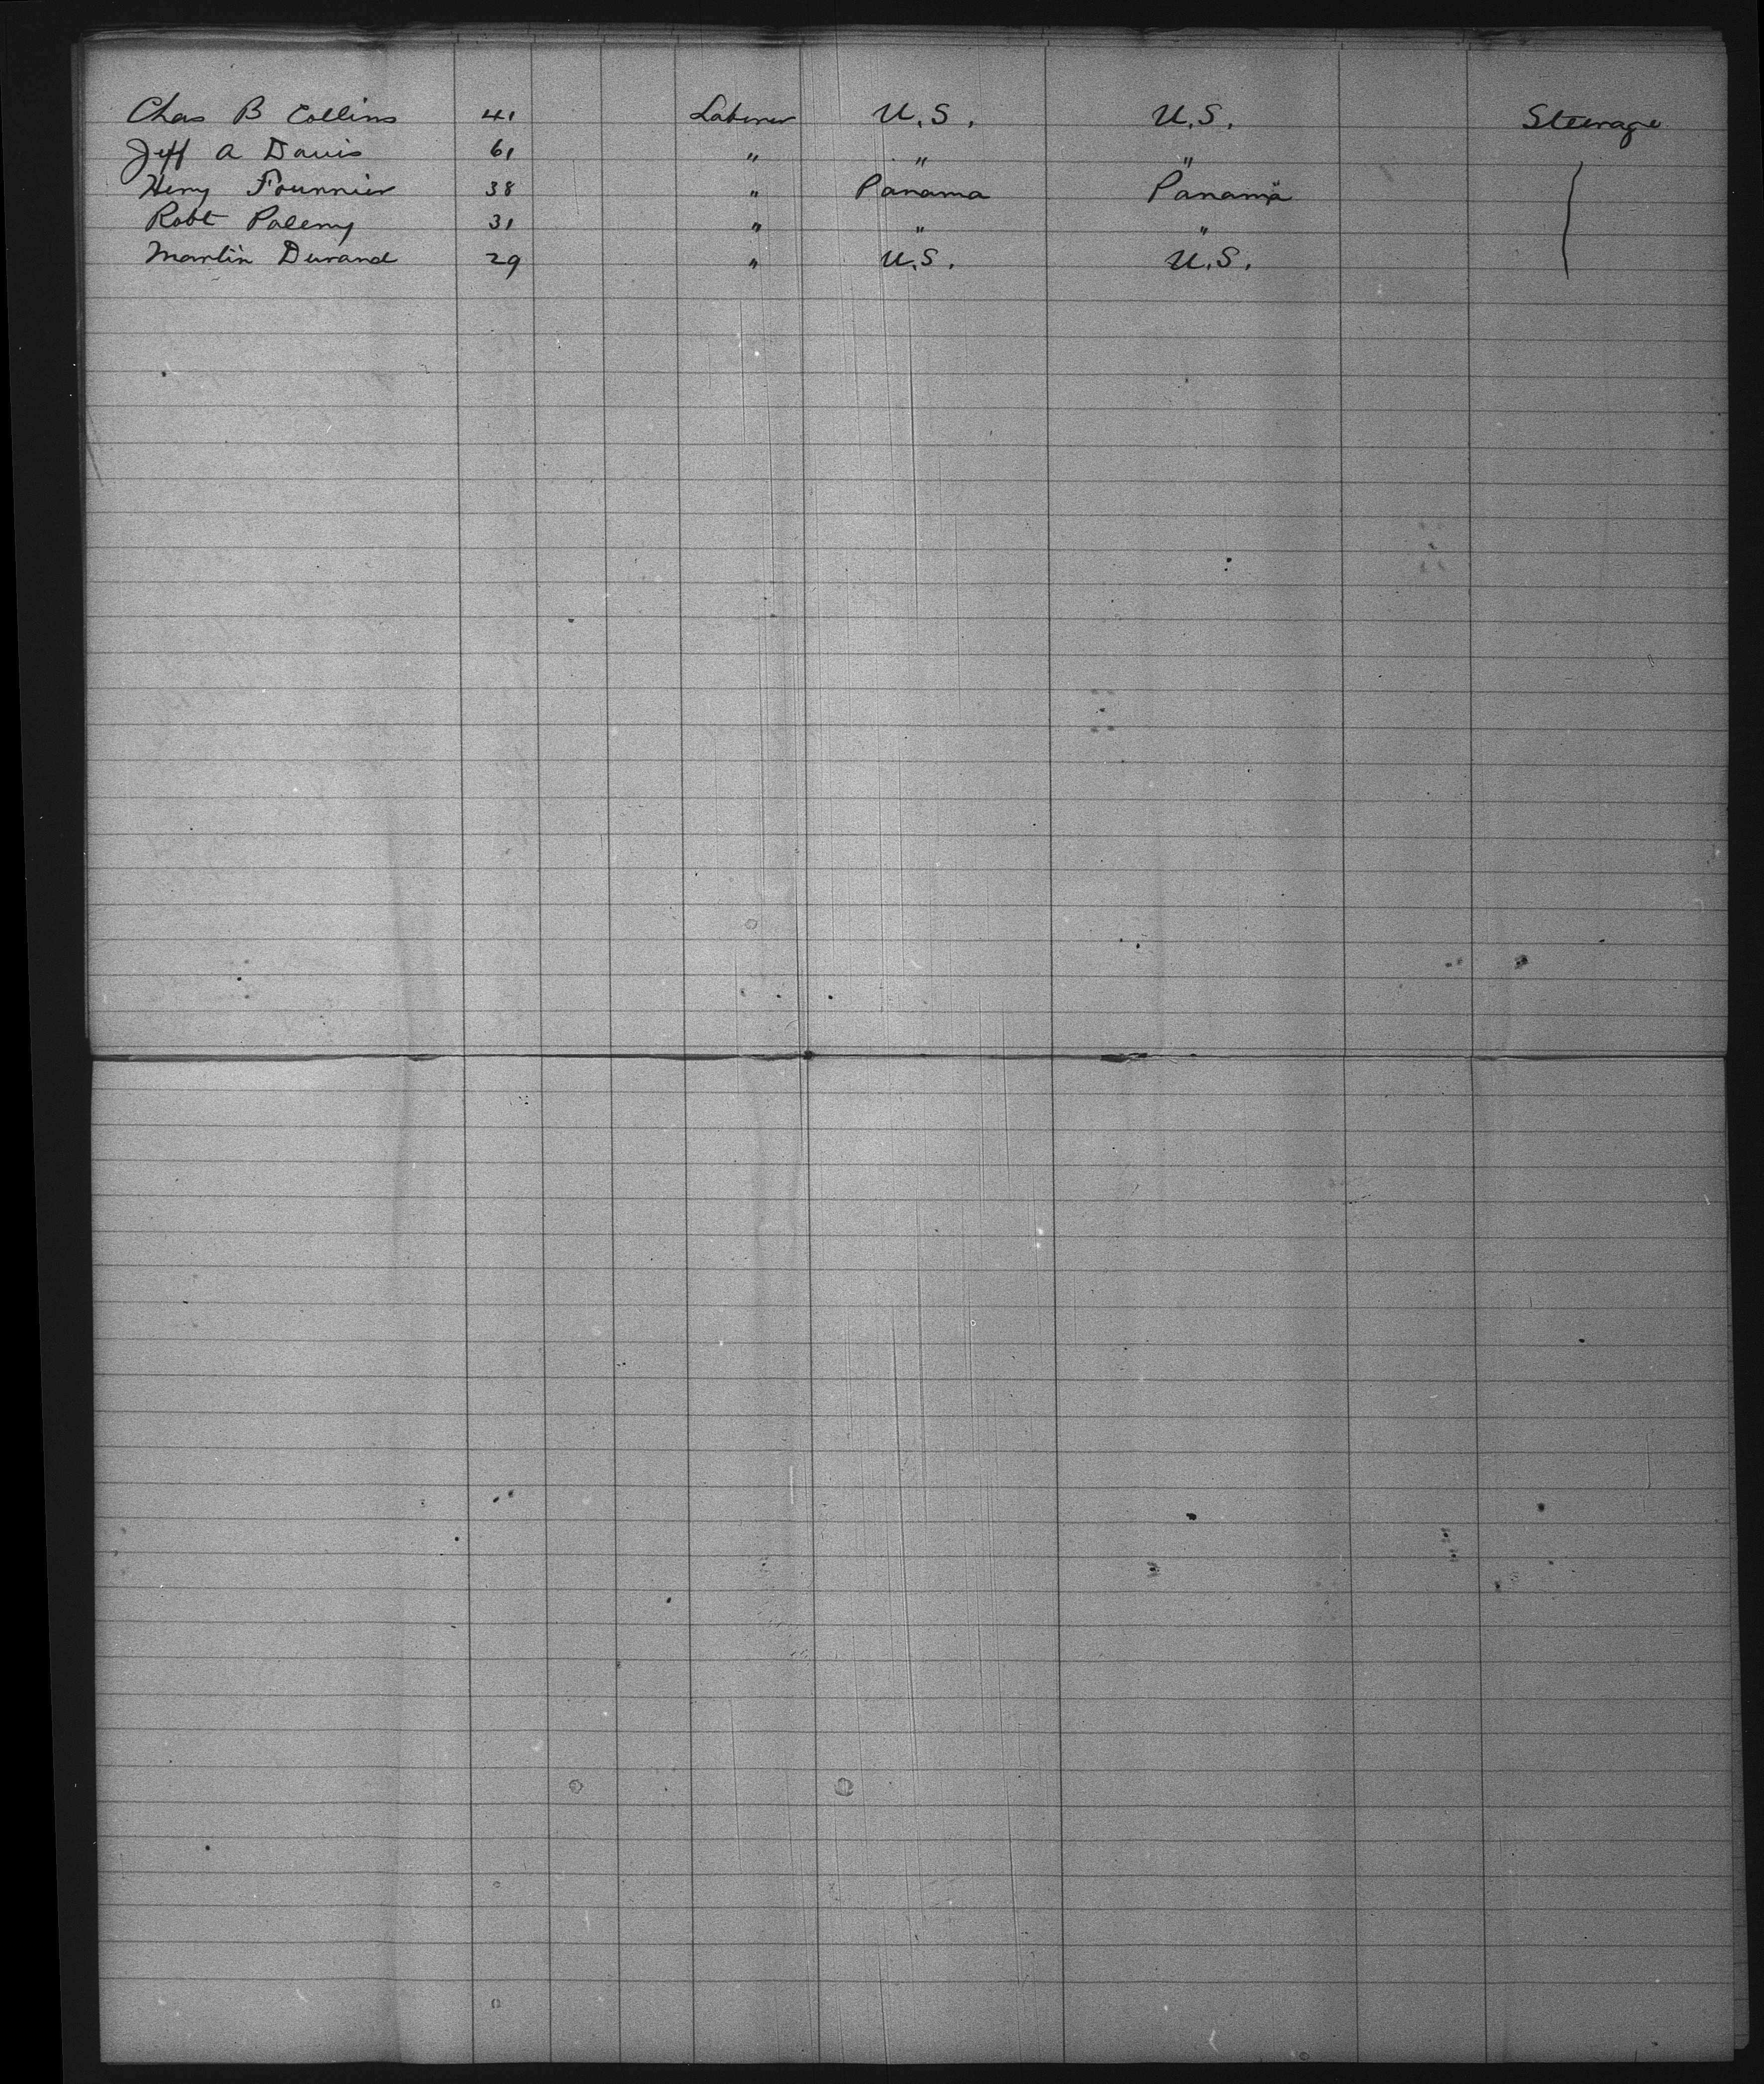 Chas B Collins 41 Laborer U.S. U.S. Steerage
Jeff A Davis 61 " " "
Henry Fournier 38 " Panama Panama
Robt 31 " " "
Martin Durand 29 " U.S. U.S.